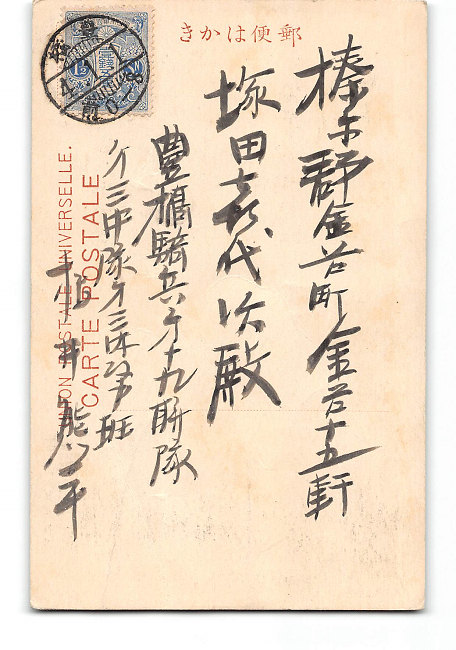 郵便はかき
榛原郡金谷町金谷十五軒
塚田喜代次殿
豊橋騎兵第十九聯隊
第三中隊第三
班
井
平
UNION POSTALE UNIVERSELLE.
CARTE POSTALE